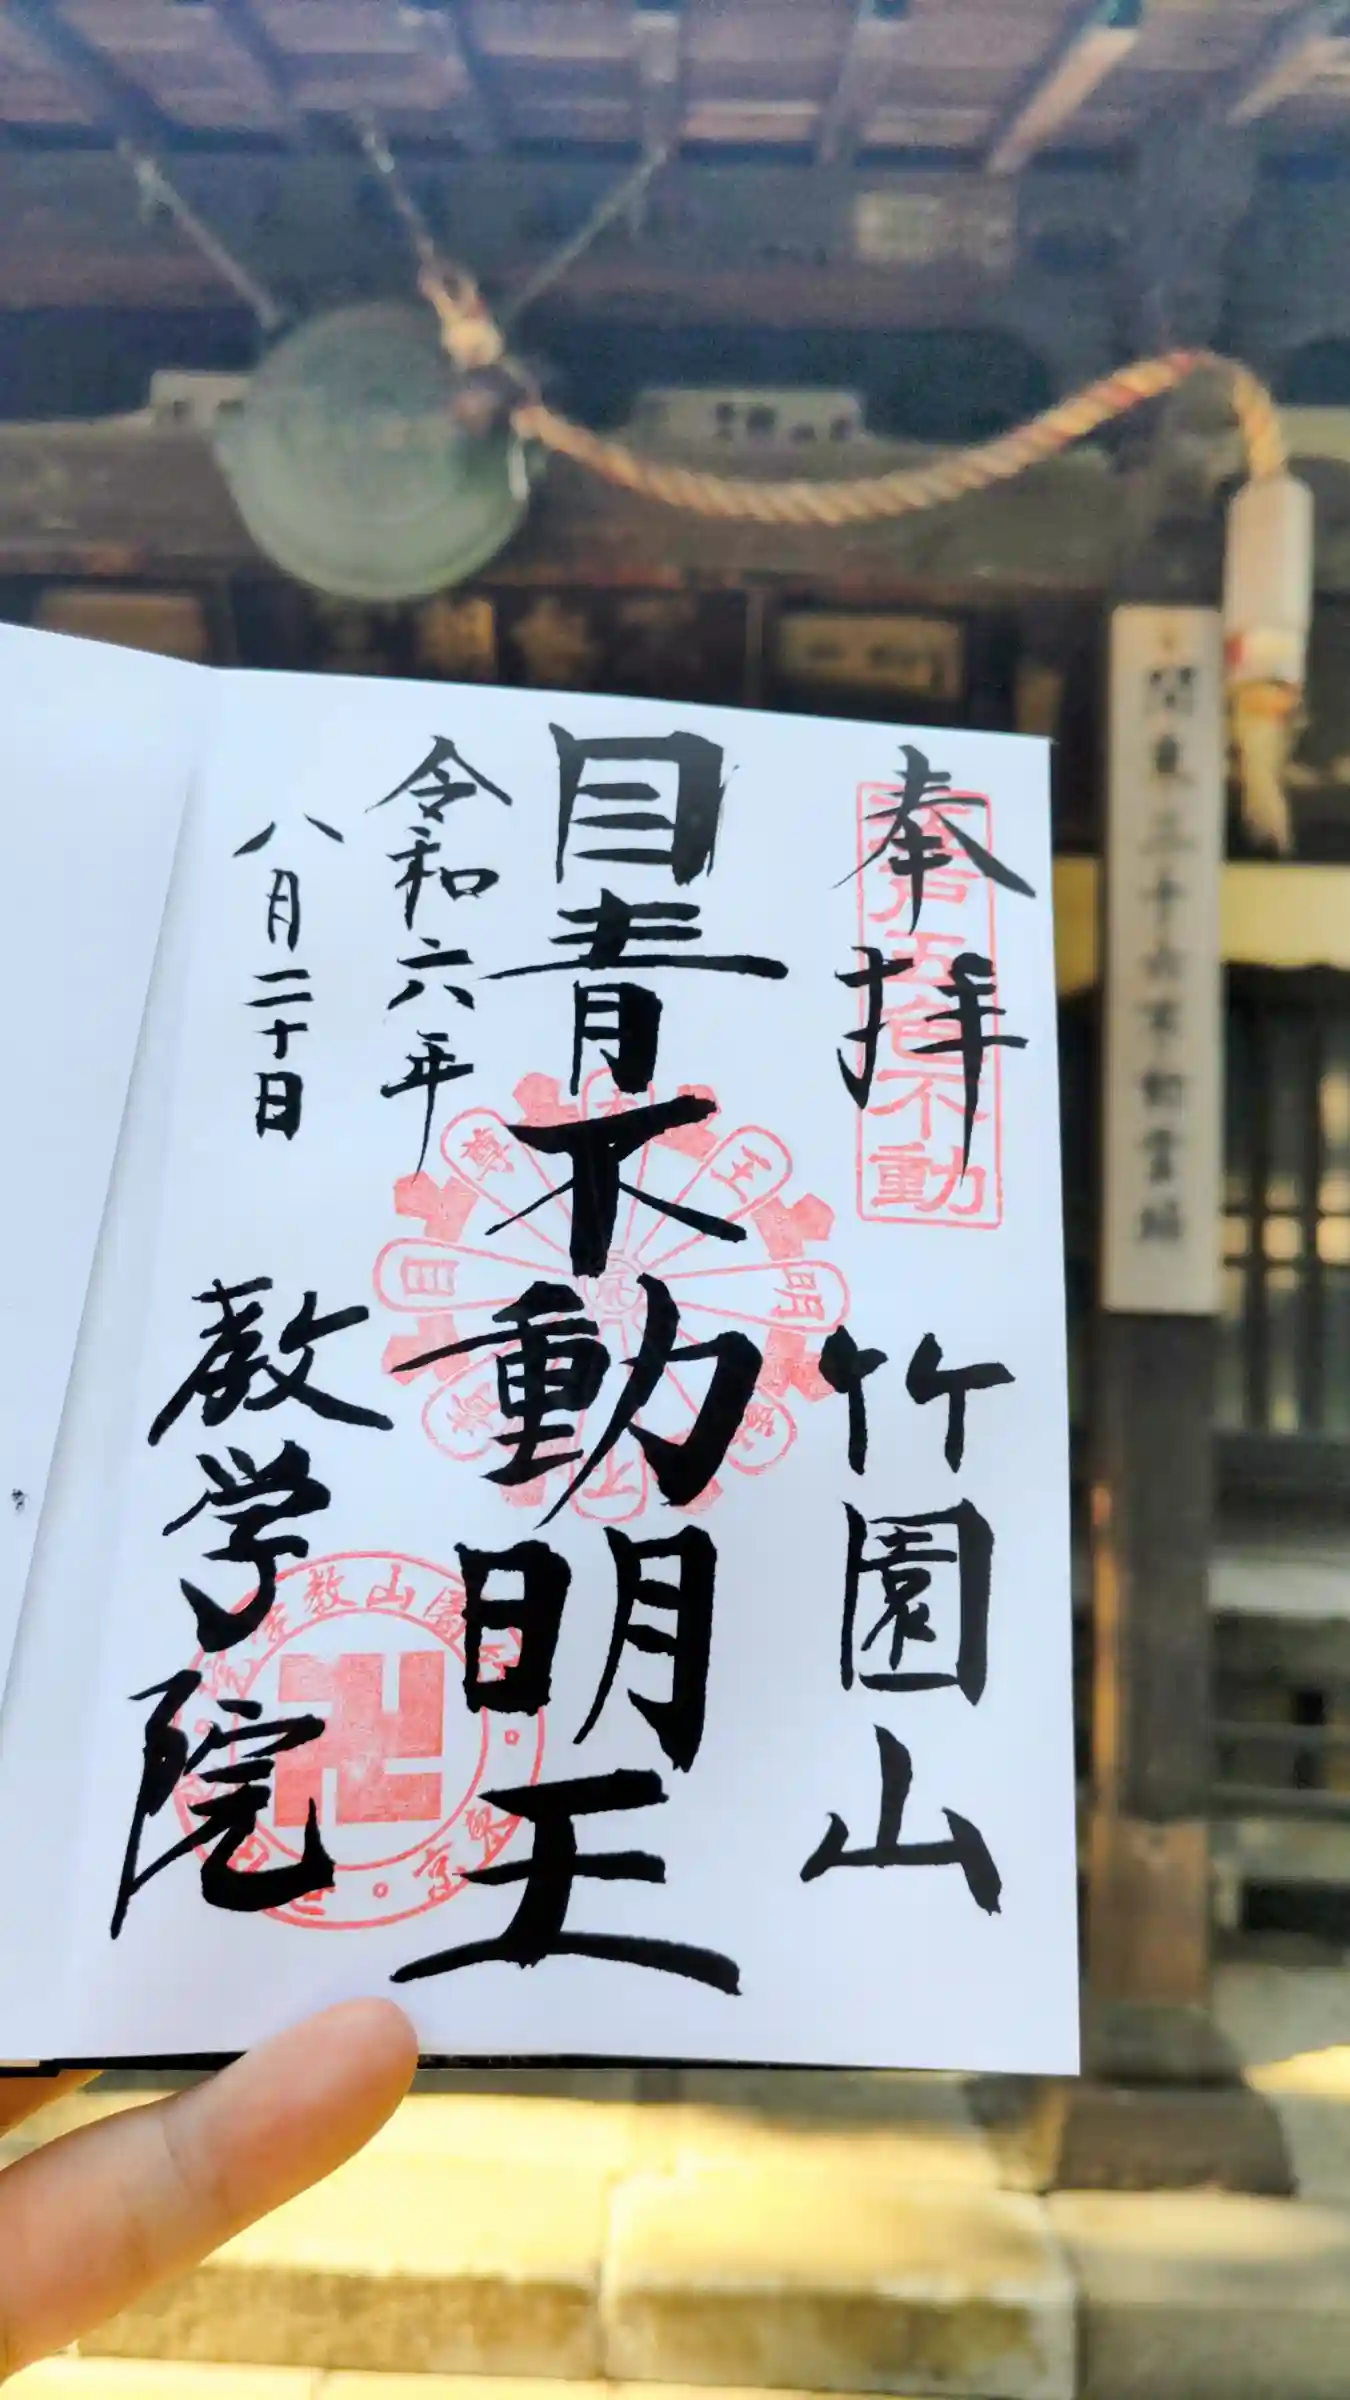 奉拝
竹園山
目青不動明王
令和六年
八月二十日
教学院
江戸五色不動
関東三十六不動霊場